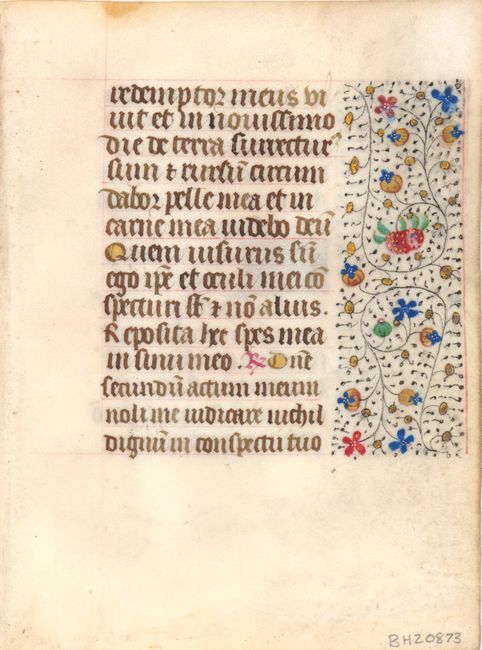 redemptor meus vi
uit et in nouissimo
die de terra surrectur᾽
sum ⁊ rursū circum
dabor pelle mea et in
carne mea uidebo deū
Quem uisurus sū
ego ip̄e et oculi mei cō
specturi st̄ ⁊ nō alius.
Reposita hec spes mea
in sinu meo. ℟ Dn̄e
secundū actum meum
noli me iudicare nichil
dignum in conspectu tuo
BH20873